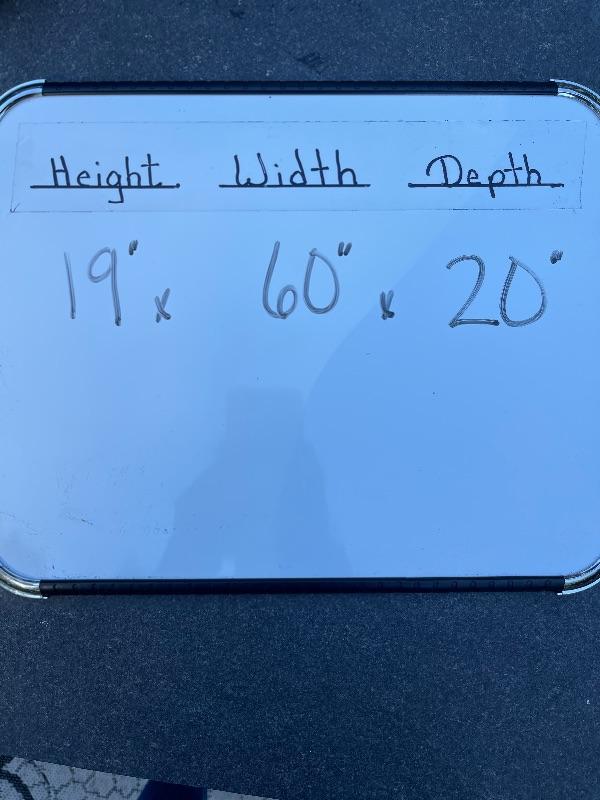 Height Width Depth
19" x 60" x 20"